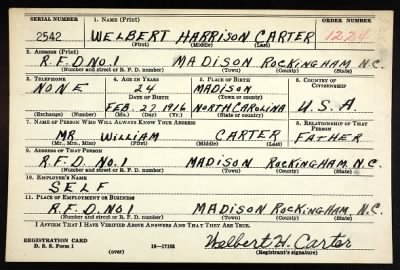 SERIAL NUMBER 1. NAME (Print) ORDER NUMBER
2542 WELBERT HARRISON CARTER 1224
(First) (Middle) (Last)
2. ADDRESS (Print)
R.F.D NO.1 MADISON ROCKINGHAM, N.C.
(Number and street or R. F. D. number) (Town) (County) (State)
3. TELEPHONE 4. AGE IN YEARS 5. PLACE OF BIRTH 6. COUNTRY OF CITIZENSHIP
NONE 24 MADISON
DATE OF BIRTH (Town or county)
FEB. 27 1916 NORTH CAROLINA U.S.A.
(Exchange) (Number) (Mo.) (Day) (Yr.) (State or country)
7. NAME OF PERSON WHO WILL ALWAYS KNOW YOUR ADDRESS 8. RELATIONSHIP OF THAT PERSON
MR WILLIAM CARTER FATHER
(Mr., Mrs., Miss) (First) (Middle) (Last)
9. ADDRESS OF THAT PERSON
R.F.D. NO.1 MADISON ROCKINGHAM, N.C.
(Number and street or R. F. D. number) (Town) (County) (State)
10. EMPLOYER'S NAME
SELF
11. PLACE OF EMPLOYMENT OR BUSINESS
R.F.D. NO1 MADISON ROCKINGHAM, N.C.
(Number and street or R. F. D. number) (Town) (County) (State)
I AFFIRM THAT I HAVE VERIFIED ABOVE ANSWERS AND THAT THEY ARE TRUE.
REGISTRATION CARD
D. S. S. Form 1 (over) 16—17105 Welbert H. Carter
(Registrant's signature)